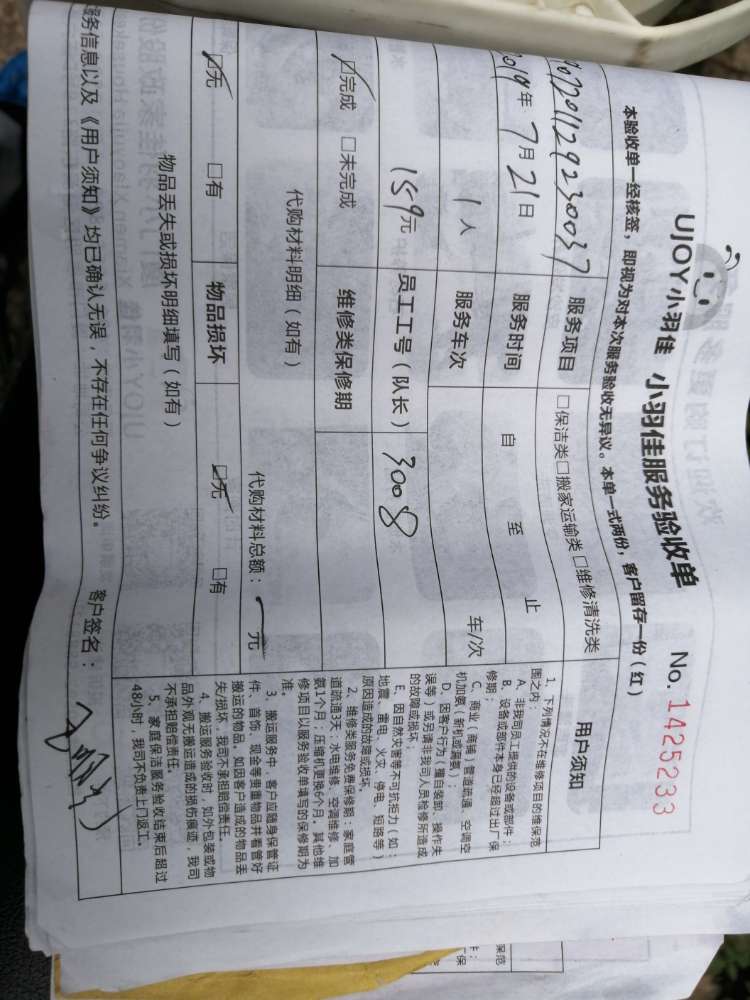 UJOY小羽佳 小羽佳服务验收单 No. 1425233
本验收单一经核签，即视为对本次服务验收无异议。本单一式两份，客户留存一份（红）
07201129230037 服务项目 □保洁类□搬家运输类□维修清洗类
2019年7月21日 服务时间 自 至 止
1人 服务车次 车/次
159元 员工工号（队长） 3008
☑完成 □未完成 维修类保修期
代购材料明细（如有） 代购材料总额： 元
☑无 □有 物品损坏 ☑无 □有
物品丢失或损坏明细填写（如有）
服务信息以及《用户须知》均已确认无误，不存在任何争议纠纷。 客户签名：
用户须知
1、下列情况不在维修项目的维保范
围之内：
A、非我司员工提供的设备或部件；
B、设备或部件本身已经超过出厂保
修期；
C、商业（商铺）管道疏通、空调空
机加氨（新机或漏氨）；
D、因客户行为（擅自装卸、操作失
误等）或另请非我司人员检修所造成
的故障或损坏；
E、因自然灾害等不可抗能力（如：
地震、雷电、火灾、停电、短路等）
原因造成的故障或损坏。
2、维修类服务免费保修期：家庭管
道疏通3天；水电维修、空调维修、加
氨1个月；压缩机更换6个月；其他维
修项目以服务验收单填写的保修期为
准。
3、搬运服务中，客户应随身保管证
件、首饰、现金等贵重物品并看管好
搬运的物品，如因客户造成的物品丢
失/损坏，我司不承担赔偿责任。
4、搬运服务验收时，如外包装或物
品外观无搬运造成的损伤痕迹，我司
不承担赔偿责任。
5、家庭保洁服务验收结束后超过
48小时，我司不负责上门返工。